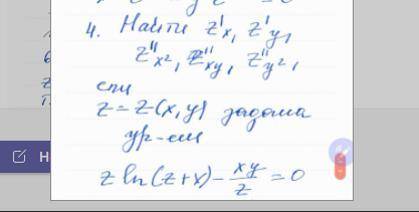 4. Найти z'x, z'y,
z''x², z''xy, z''y²,
если
z=z(x,y) задана
ур-ем
z ln(z+x) - xy/z = 0